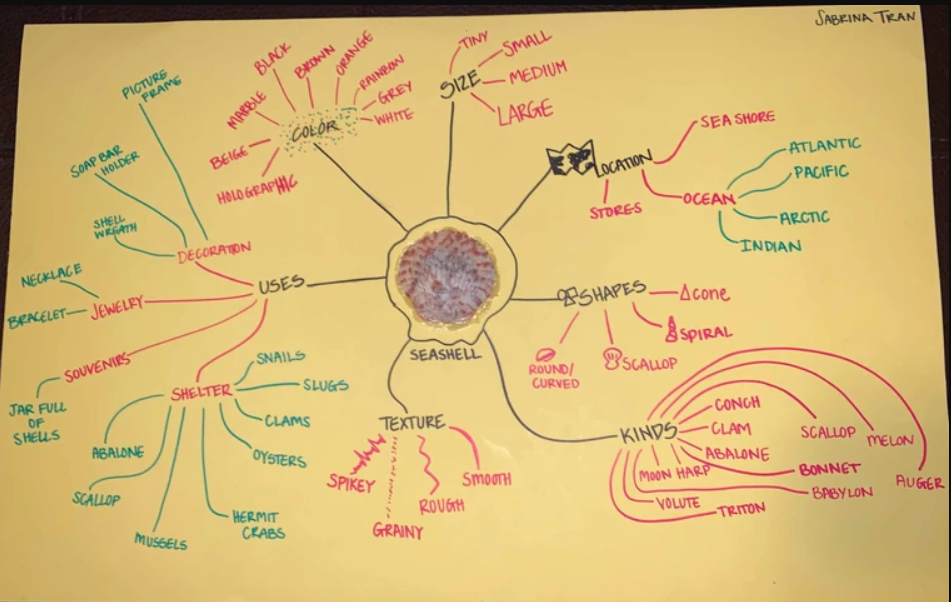 SABRINA TRAN
SIZE
TINY
SMALL
MEDIUM
LARGE
COLOR
BLACK
BROWN
ORANGE
RAINBOW
GREY
WHITE
MARBLE
BEIGE
HOLOGRAPHIC
LOCATION
SEA SHORE
STORES
OCEAN
ATLANTIC
PACIFIC
ARCTIC
INDIAN
SHAPES
CONE
SPIRAL
SCALLOP
ROUND/
CURVED
SEASHELL
USES
DECORATION
PICTURE
FRAME
SOAP BAR
HOLDER
SHELL
WREATH
JEWELRY
NECKLACE
BRACELET
SOUVENIRS
JAR FULL
OF
SHELLS
SHELTER
SNAILS
SLUGS
CLAMS
OYSTERS
HERMIT
CRABS
MUSSELS
SCALLOP
ABALONE
TEXTURE
SPIKEY
GRAINY
ROUGH
SMOOTH
KINDS
CONCH
CLAM
ABALONE
MOON HARP
VOLUTE
TRITON
BABYLON
BONNET
SCALLOP
MELON
AUGER